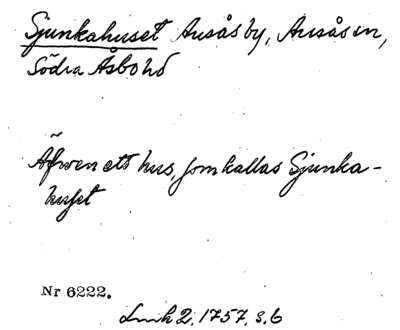 Sjunkahuset Ansås by, Ansås sn,
Södra Åsbo hd
Äfwen ett hus, som kallas Sjunka-
huset
Nr 6222.
Lmh 2, 1757, s. 6